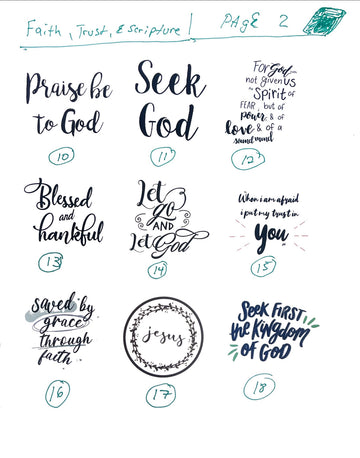 Faith, Trust, & Scripture | PAGE 2
Praise be
to God
10
Seek
God
11
For God
not given us
Spirit of
FEAR, but of
power & of
love & of a
sound mind
12
Blessed
and
thankful
13
Let
go
AND
Let God
14
When i am afraid
i put my trust in
You
15
saved by
grace
through
faith
16
jesus
17
SEEK FIRST
the KINGDOM
OF GOD
18